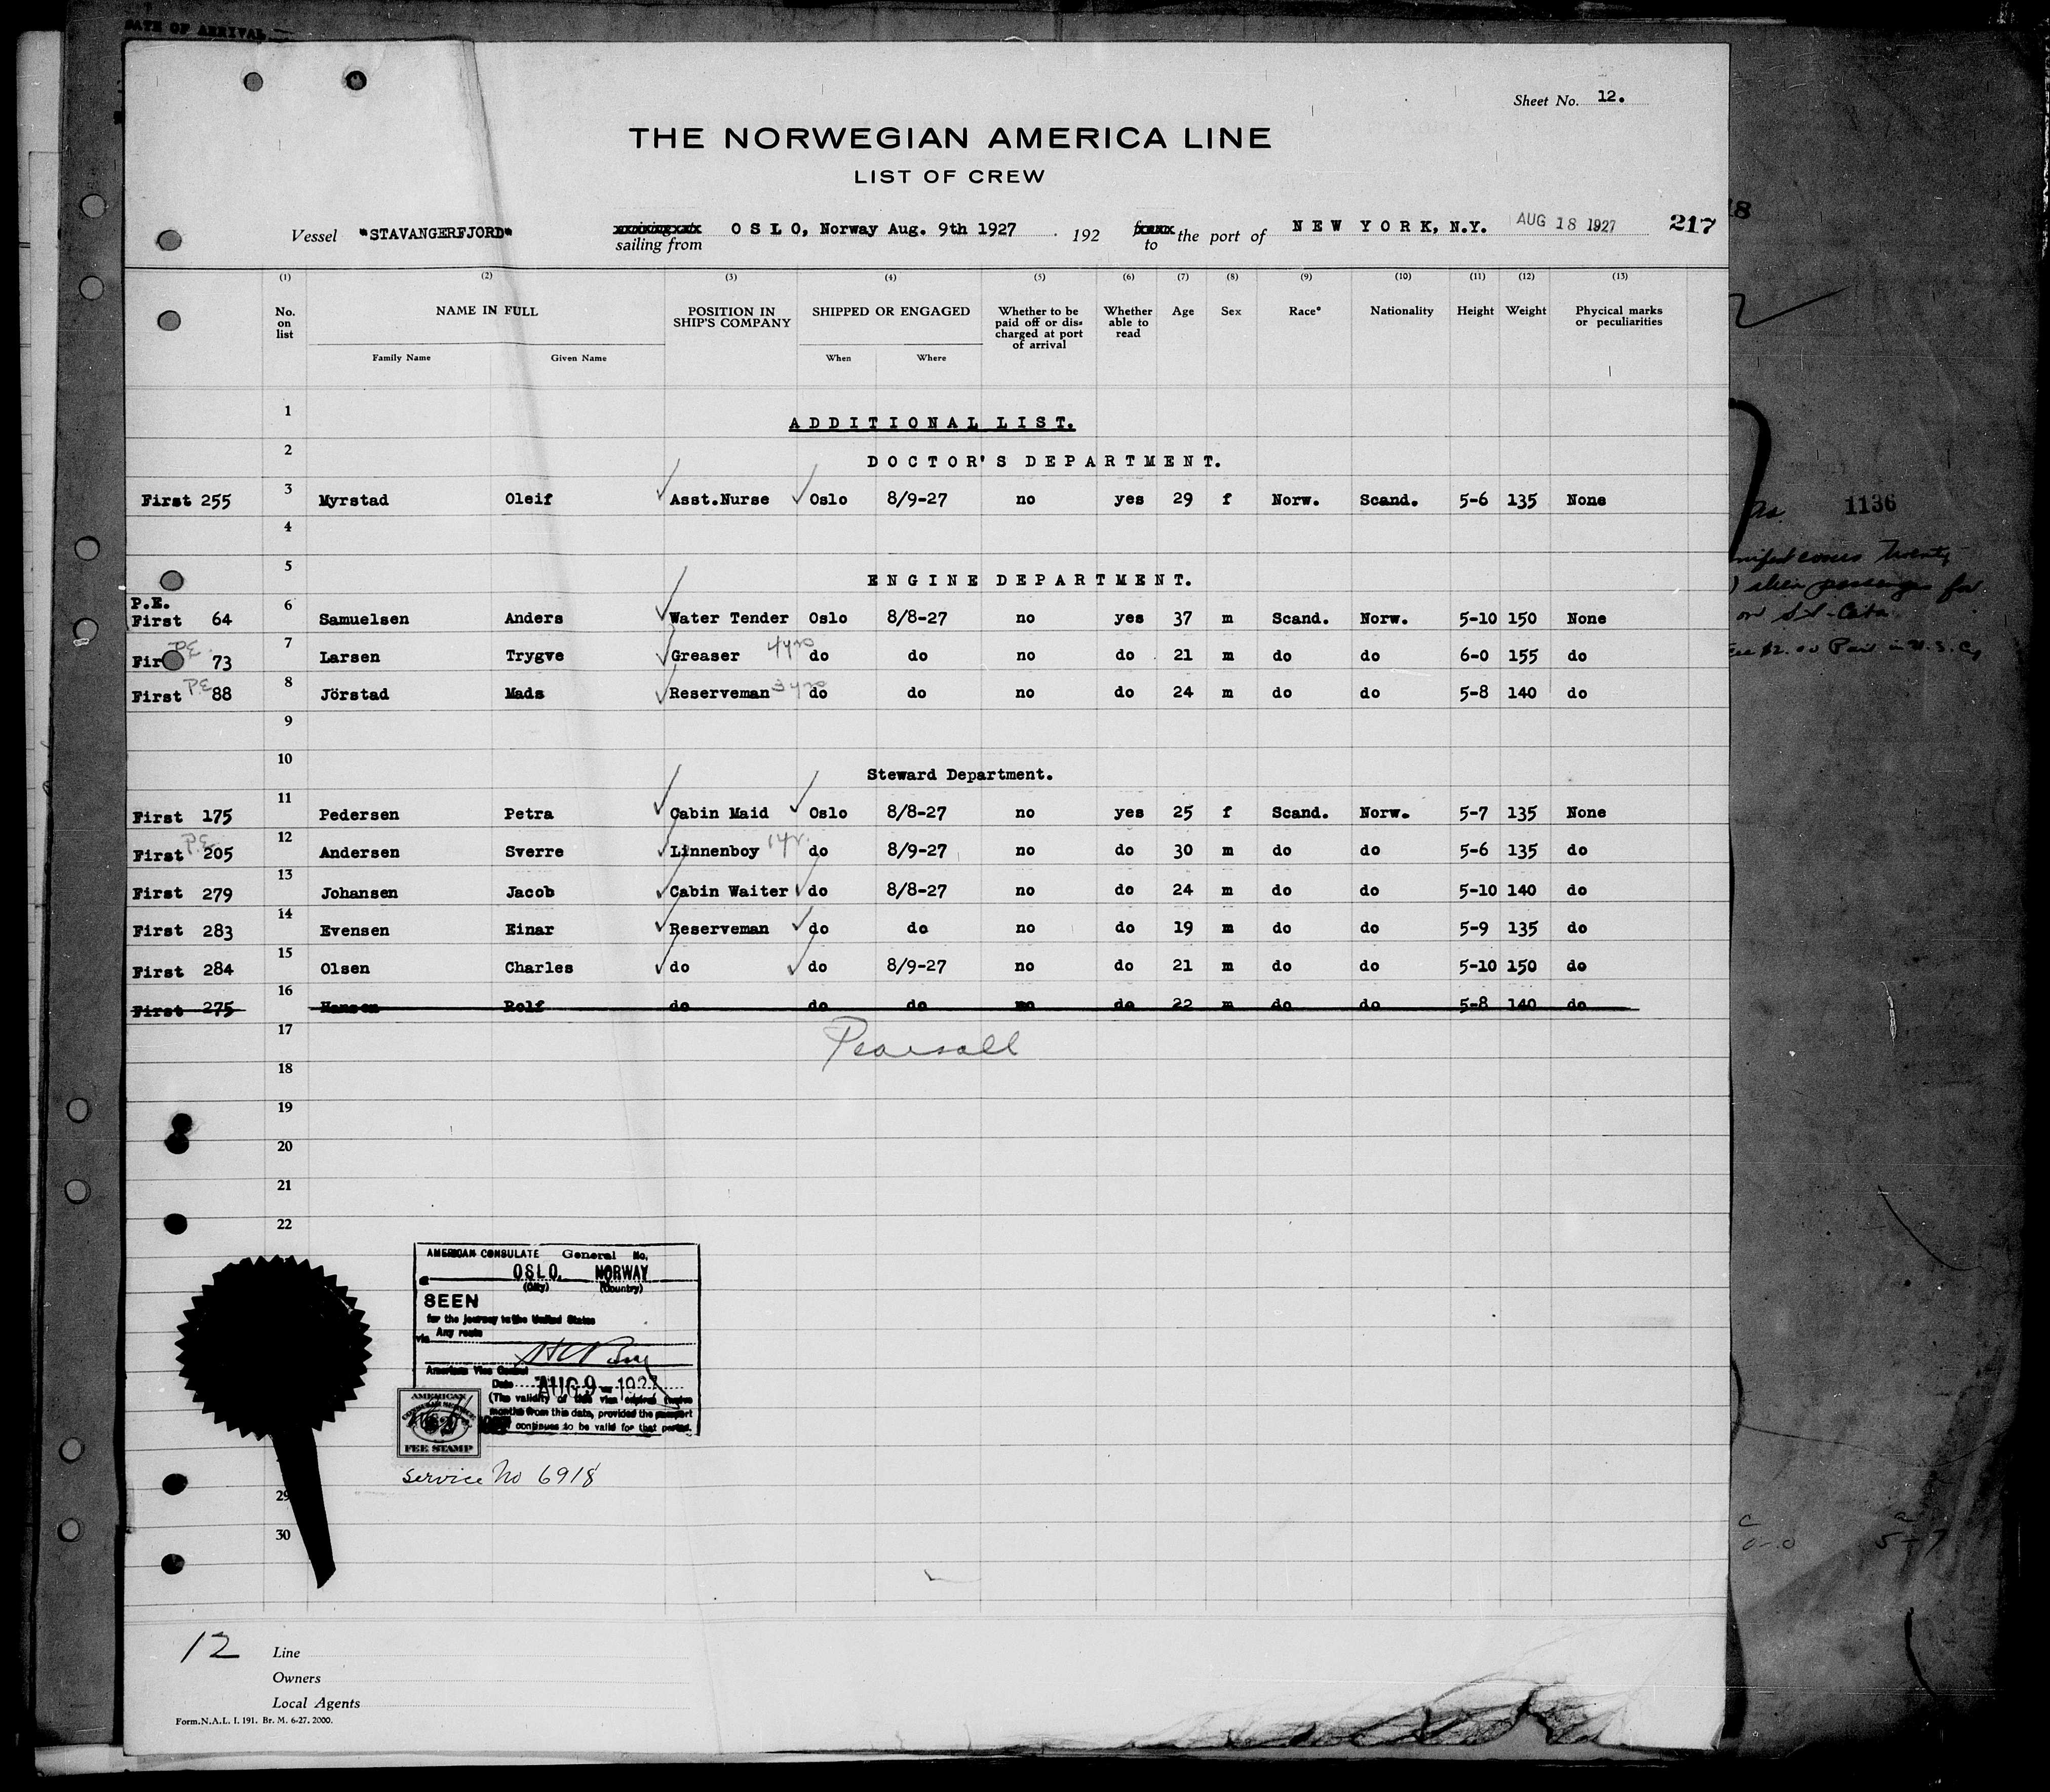 DATE OF ARRIVAL
Sheet No. 12.
THE NORWEGIAN AMERICA LINE
LIST OF CREW
Vessel "STAVANGERFJORD" sailing from O S L O, Norway Aug. 9th 1927 192 to the port of N E W Y O R K, N.Y. AUG 18 1927 217
(1) (2) (3) (4) (5) (6) (7) (8) (9) (10) (11) (12) (13)
No. on list NAME IN FULL POSITION IN SHIP'S COMPANY SHIPPED OR ENGAGED Whether to be paid off or discharged at port of arrival Whether able to read Age Sex Race* Nationality Height Weight Phycical marks or peculiarities
Family Name Given Name When Where
1 A D D I T I O N A L L I S T.
2 D O C T O R ' S D E P A R T M E N T.
First 255 3 Myrstad Oleif Asst.Nurse Oslo 8/9-27 no yes 29 f Norw. Scand. 5-6 135 None
4
5 E N G I N E D E P A R T M E N T.
P.E.
First 64 6 Samuelsen Anders Water Tender Oslo 8/8-27 no yes 37 m Scand. Norw. 5-10 150 None
P.E. 73 7 Larsen Trygve Greaser do do no do 21 m do do 6-0 155 do
First P.E. 88 8 Jörstad Mads Reserveman do do no do 24 m do do 5-8 140 do
9
10 Steward Department.
First 175 11 Pedersen Petra Cabin Maid Oslo 8/8-27 no yes 25 f Scand. Norw. 5-7 135 None
First P.E. 205 12 Andersen Sverre Linnenboy 1 yr. do 8/9-27 no do 30 m do do 5-6 135 do
First 279 13 Johansen Jacob Cabin Waiter do 8/8-27 no do 24 m do do 5-10 140 do
First 283 14 Evensen Einar Reserveman do do no do 19 m do do 5-9 135 do
First 284 15 Olsen Charles do do 8/9-27 no do 21 m do do 5-10 150 do
First 275 16 Hansen Rolf do do do no do 22 m do do 5-8 140 do
17 Pearsall
18
19
20
21
22
AMERICAN CONSULATE General No.
OSLO, NORWAY
(City) (Country)
SEEN
for the journey to the United States
via Any route
American Vice Consul
Date AUG 9 - 1927
(The validity of this visa expires twelve
months from this date, provided the passport
continues to be valid for that period.
AMERICAN
CONSULAR SERVICE
FEE STAMP
Service No 6918
29
30
12
Line
Owners
Local Agents
Form.N.A.L. I. 191. Br. M. 6-27. 2000.
1136